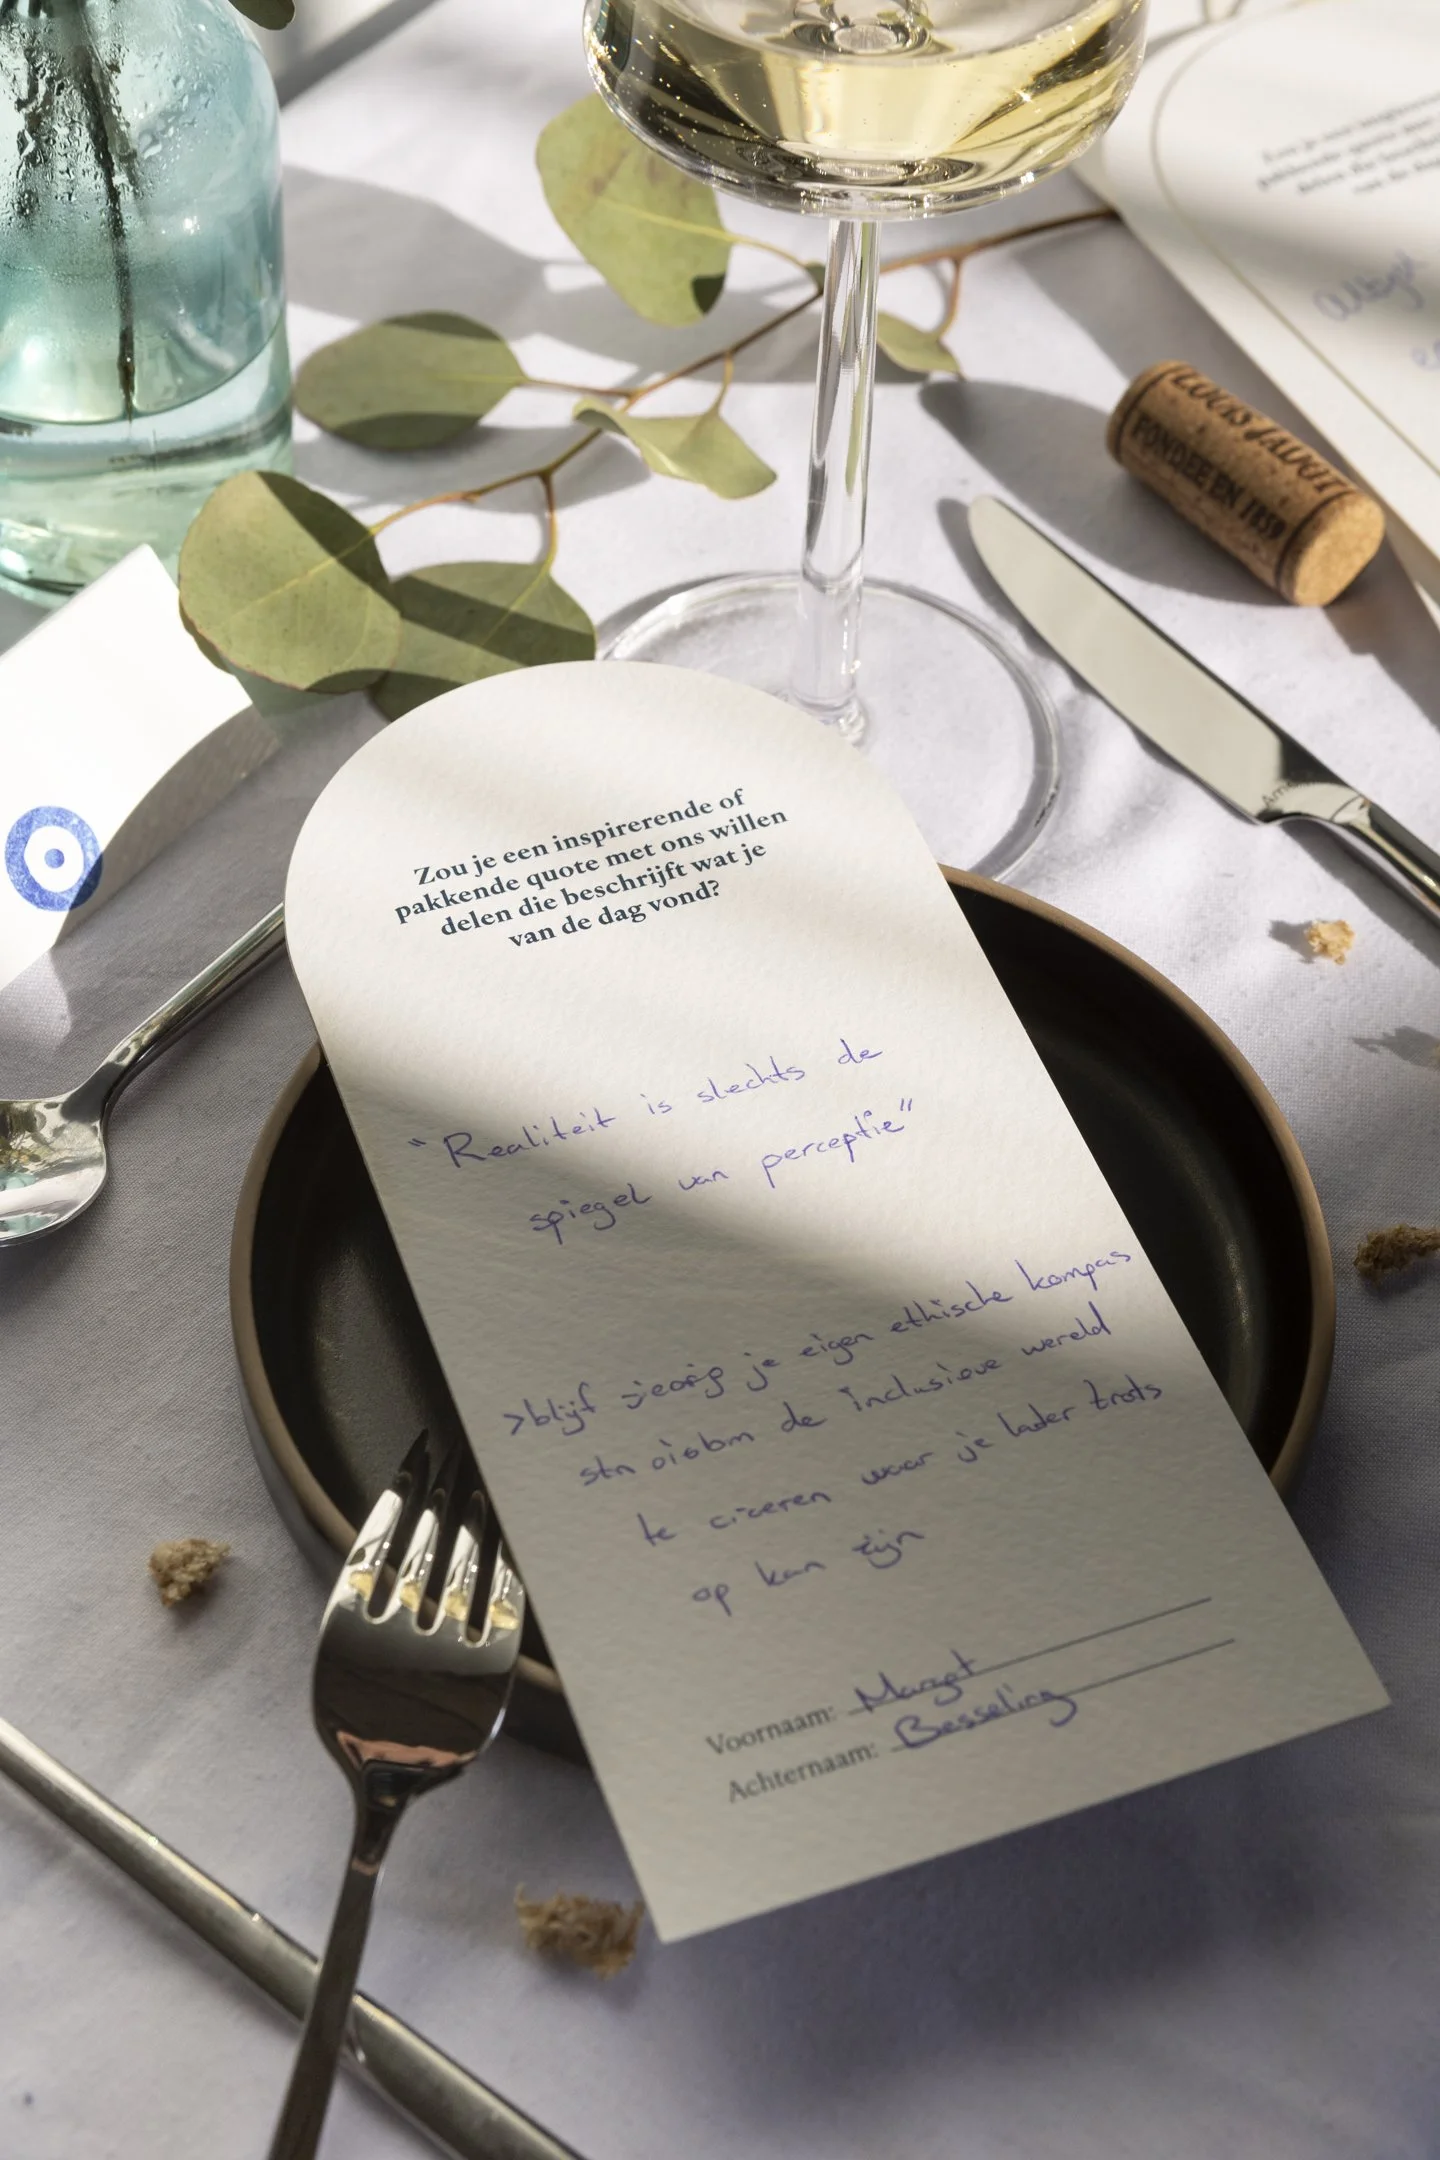 LOUIS JADOT
FONDÉE EN 1859
Zou je een inspirerende of
pakkende quote met ons willen
delen die beschrijft wat je
van de dag vond?
"Realiteit is slechts de
spiegel van perceptie"
>blijf je eigen ethische kompas
de inclusieve wereld
te waar je later trots
op kan zijn
Voornaam: Margot
Achternaam: Besseling